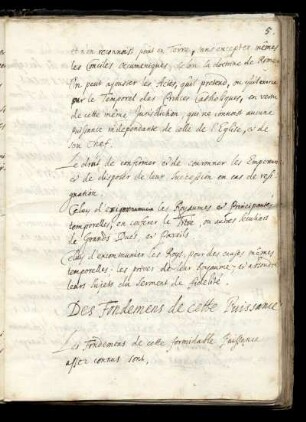 5.
et n'en reconnoît point en Terre, sans excepter mêmes
les Conciles Oecumeniques, selon la doctrine de Rome.
On peut ajouster les Actes, qu'il pretend, ou qu'il exerce
sur le Temporel des Princes Catholiques, en vertu
de cette même Jurisdiction, que ne connoit aucune
Puissance independante de celle de l'Eglise, & de
son Chef.
Le droit de confirmer & de couronner les Empereurs
& de disposer de leur Succession en cas de resi-
gnation.
Celuy d' les Royaumes & Principautés
temporelles, en conferer le Titre, ou autres
de Grands Ducs, et
Celuy d'excommunier les Roys, pour des causes mêmes
temporelles. les priver de leur Royaume, & absoudre
leurs Sujets du Serment de fidelité.
Des Fondemens de cette Puissance
Les Fondemens de cette formidable Puissance
assez connus sont.